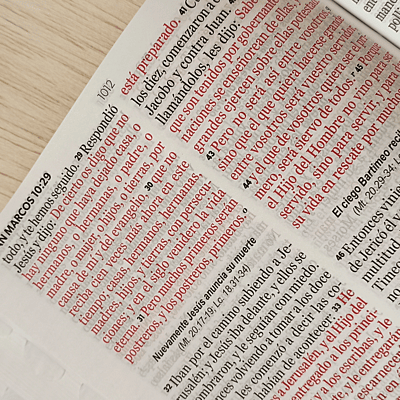 1012
SAN MARCOS 10:29
todo, y te hemos seguido. 29 Respondió
Jesús y dijo: De cierto os digo que no
hay ninguno que haya dejado casa, o
hermanos, o hermanas, o padre, o
madre, o mujer, o hijos, o tierras, por
causa de mí y del evangelio, 30 que no
reciba cien veces más ahora en este
tiempo; casas, hermanos, hermanas,
madres, hijos, y tierras, con persecu-
ciones; y en el siglo venidero la vida
eterna. 31 Pero muchos primeros serán
postreros, y los postreros, primeros.
Nuevamente Jesús anuncia su muerte
(Mt. 20.17-19; Lc. 18.31-34)
32 Iban por el camino subiendo a Je-
rusalén; y Jesús iba delante, y ellos se
asombraron, y le seguían con miedo.
Entonces volviendo a tomar a los doce
les comenzó a decir las co-
habían de acontecer: 33 He
a Jerusalén, y el Hijo del
entregado a los princi-
y a los escribas, y le
y le entregará
está preparado.
los diez, comenzaron a
Jacobo y contra Juan.
llamándolos, les dijo: Sabé
que son tenidos por gobernan
naciones se enseñorean de ellas,
grandes ejercen sobre ellas potestad.
43 Pero no será así entre vosotros,
sino que el que quiera hacerse grande
entre vosotros será vuestro servidor,
44 y el que de vosotros quiera ser el pri-
mero, será siervo de todos. 45 Porque
el Hijo del Hombre no vino para ser
servido, sino para servir, y para dar
su vida en rescate por muchos.
El ciego Bartimeo
(Mt. 20.29-34; Lc.
46 Entonces
de Jericó él y
multitud
Timeo